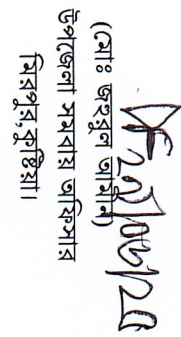 (মোঃ জহুরুল আমিন)
উপজেলা সমবায় অফিসার
মিরপুর, কুষ্টিয়া।